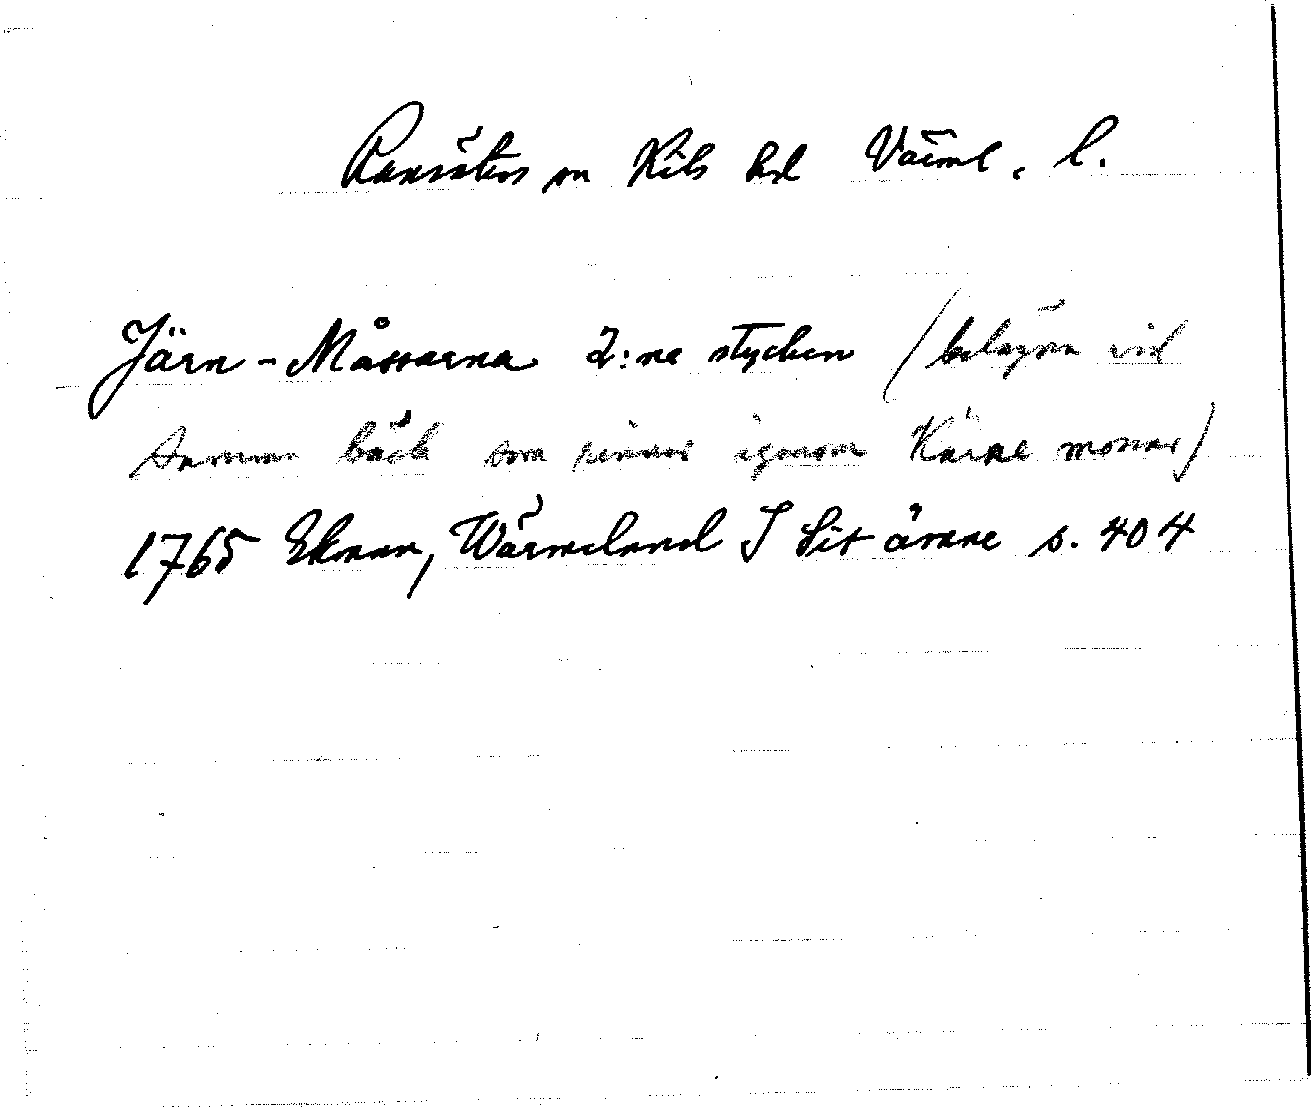 Ransäters sn Kils hd Värml. l.
Järn-Måssarna 2:ne stycken (belägna vid
samma bäck som rinner igenom Kärne mosse)
1765 Ekman, Wärmeland I sit ämne s. 404